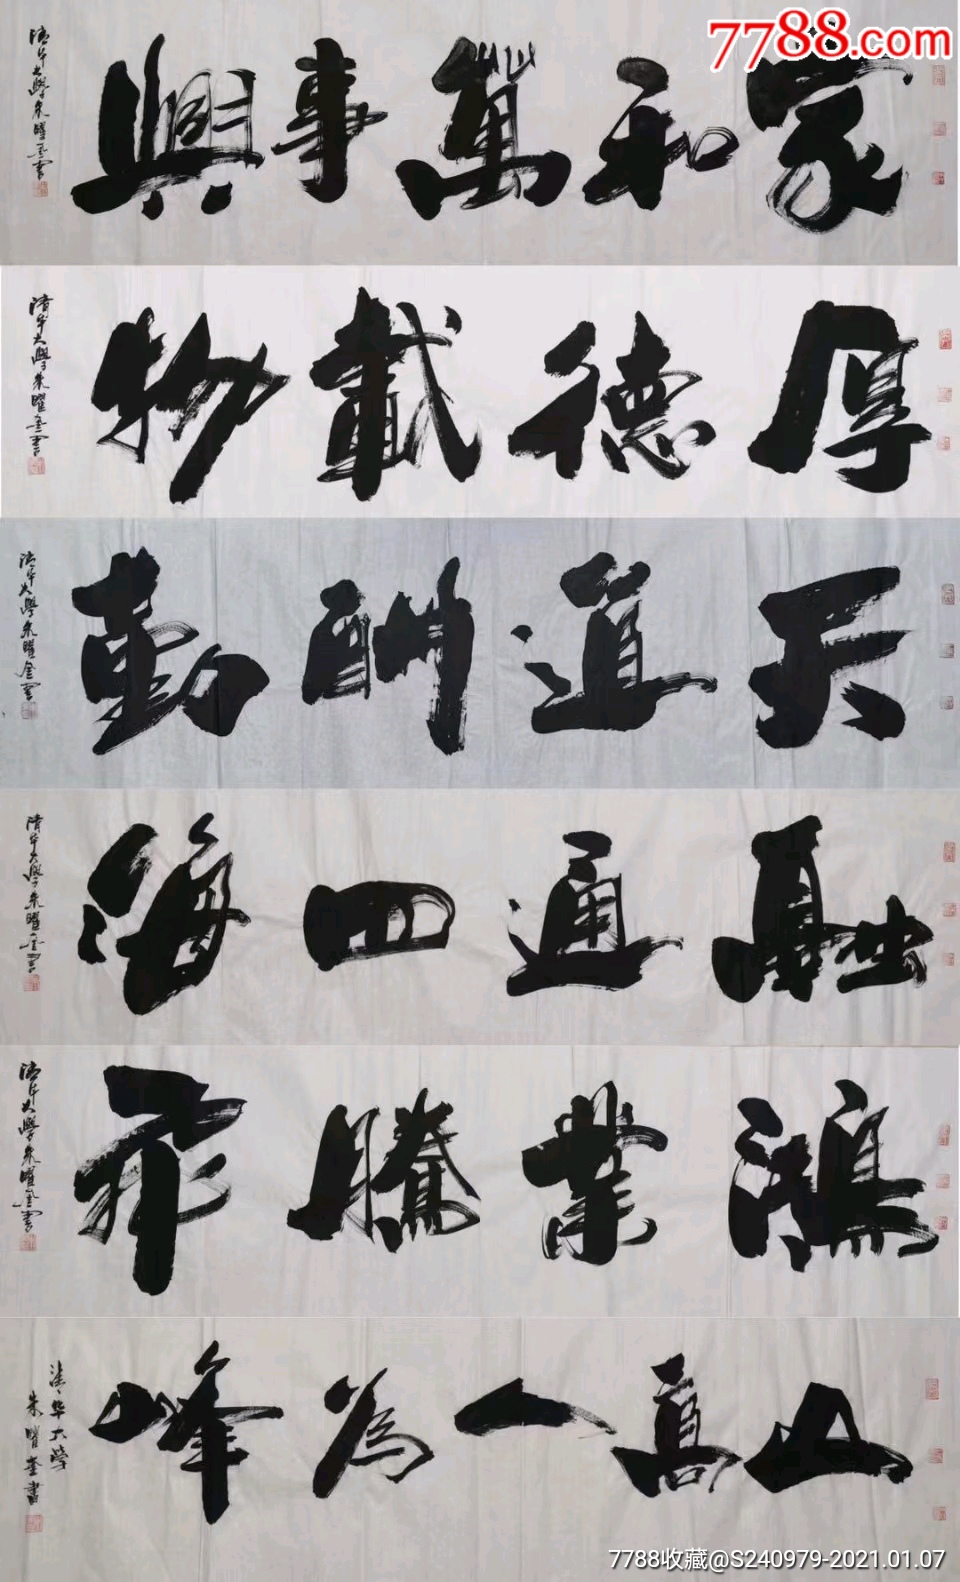 7788.com
家和萬事興
清华大學朱曜奎書
厚德載物
清华大學朱曜奎書
天道酬勤
清华大學朱曜奎書
融通四海
清华大學朱曜奎書
鴻業騰飛
清华大學朱曜奎書
山高人为峰
清华大学
朱曜奎書
7788收藏@S240979-2021.01.07